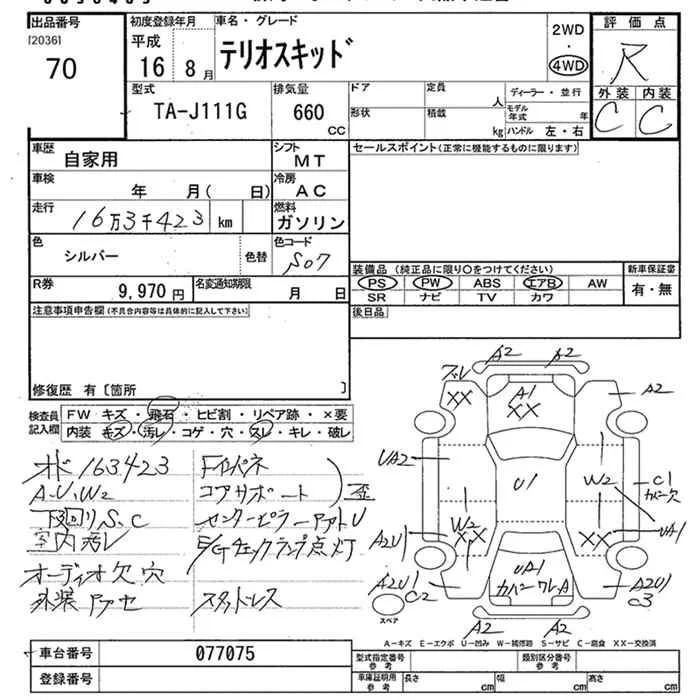 出品番号
[2036]
70
初度登録年月
平成
16 8月
車名・グレード
テリオスキッド
2WD
・
4WD
評価点
R
外装 内装
C C
型式
TA-J111G
排気量
660
CC
ドア
形状
定員
人
積載
kg
ディーラー・並行
モデル年式 年
ハンドル 左・右
車歴
自家用
シフト
MT
セールスポイント(正常に機能するものに限ります)
車検
年 月( 日)
冷房
AC
走行
16万3千423 km
燃料
ガソリン
色
シルバー
色替
色コード
S07
装備品(純正品に限り○をつけてください)
新車保証書
PS PW ABS エアB AW
有・無
SR ナビ TV カワ
R券
9,970 円
名変通知期限
月 日
後日品
注意事項申告欄(不具合内容等は具体的に記入して下さい)
修復歴 有[箇所 ]
検査員
記入欄
FW キズ・飛石・ヒビ割・リペア跡・×要
内装 キズ・汚レ・コゲ・穴・スレ・キレ・破レ
オド 163423
A・U、W2
下回りS、C
室内汚レ
オーディオ欠 穴
外装アセ
Fインパネ
コアサポート
歪
センターピラーアウトU
E/Gチェックランプ点灯
スタットレス
A2 A2
ズレ
XX
A1
XX
A2
UA2
U1
W2
C1
カバー欠
UA1
W2
XX
XX
A2U1
A2U1
C2
UA1
カバーワレA
A2U1
C3
A2 A2
スペア
A-キズ E-エクボ U-凹み W-補修跡 S-サビ C-腐食 XX-交換済
車台番号
077075
登録番号
型式指定番号
参考
類別区分番号
参考
車庫証明用
参考
長さ cm
幅 cm
高さ cm